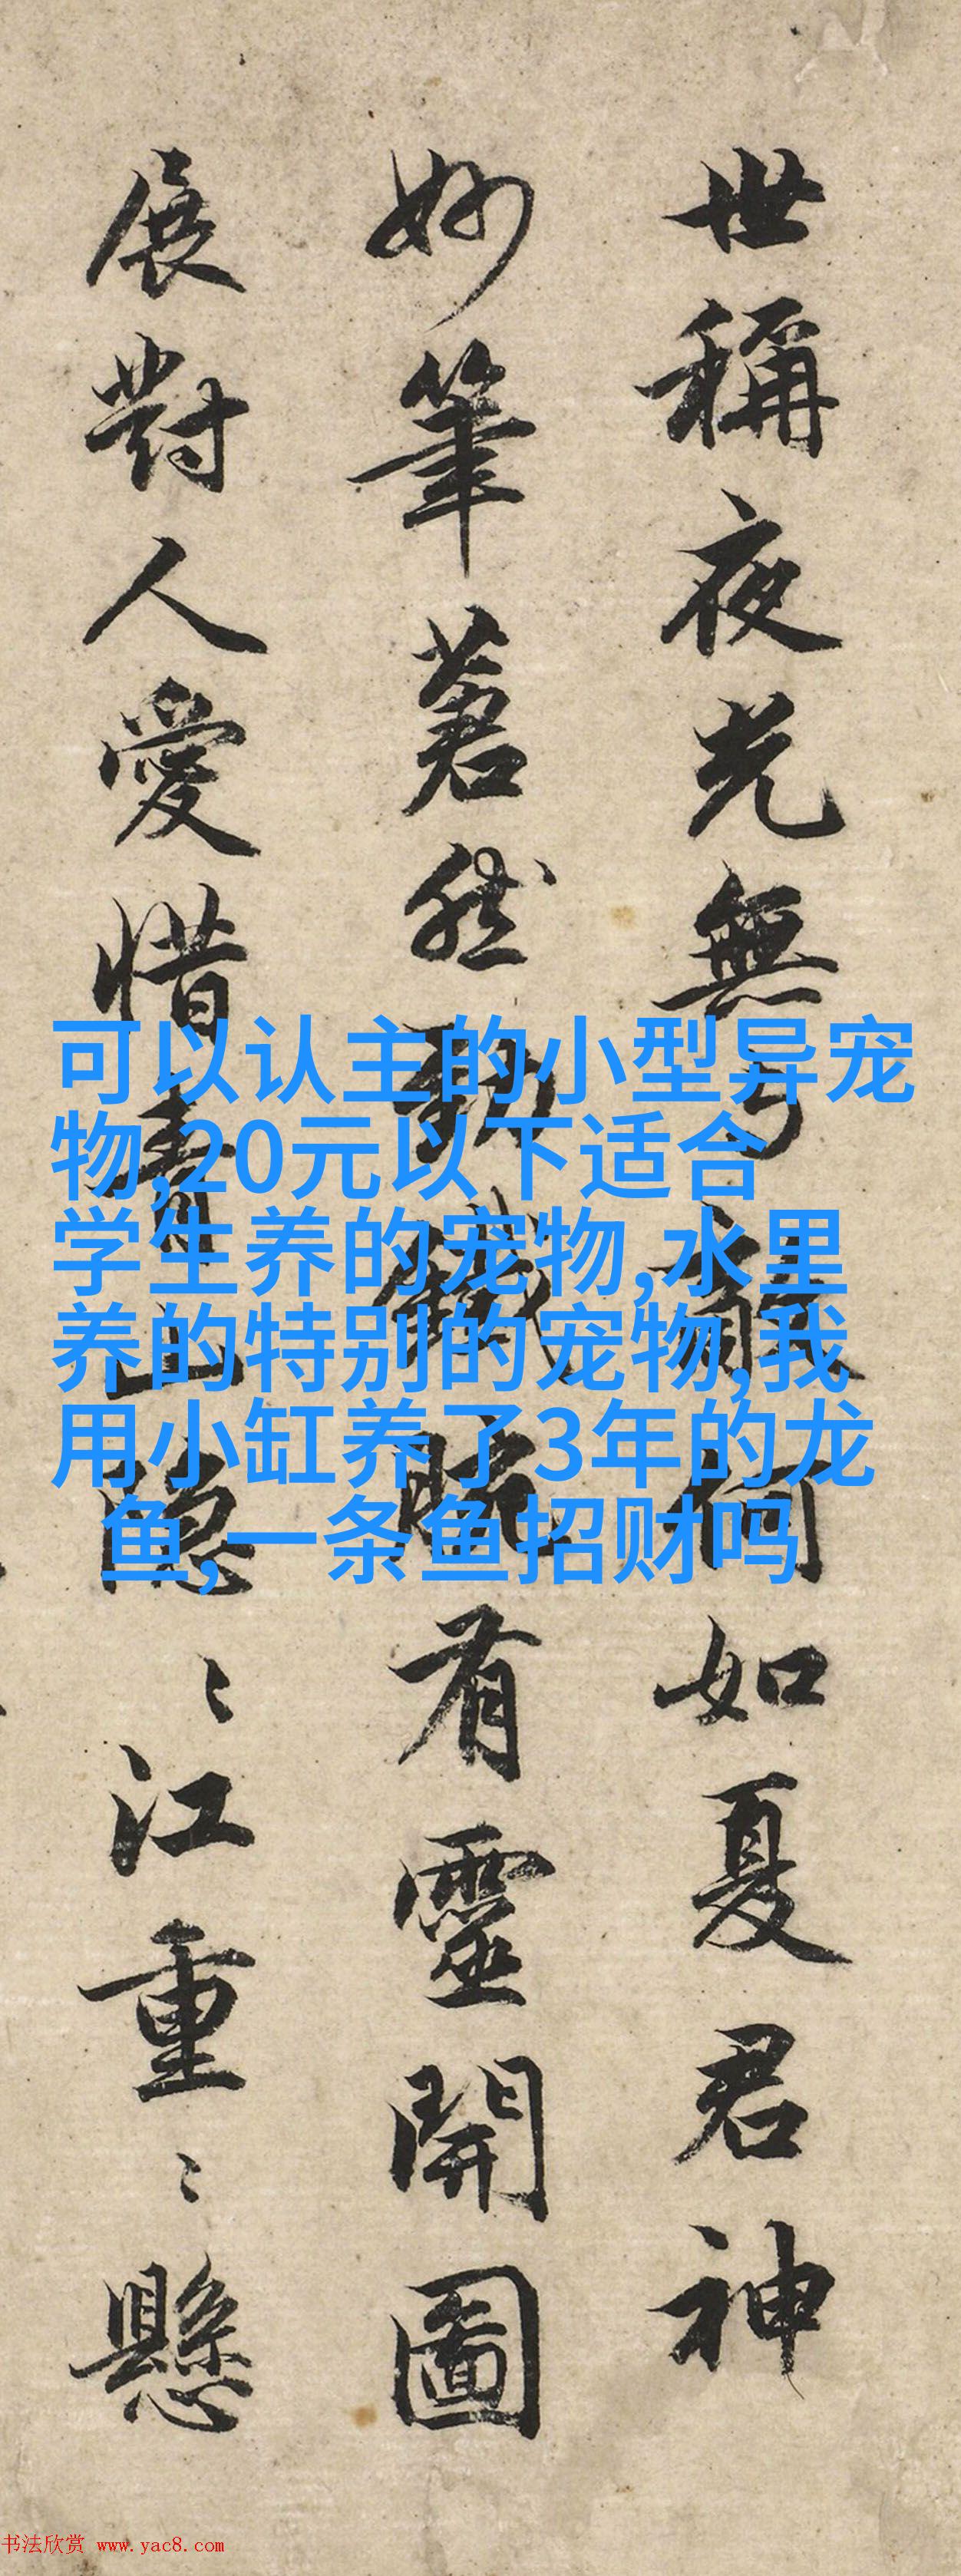 世稱夜光無与顏何如夏君神
妙筆著然動鑯眎有靈開圖
展對人愛惜青山隐〻江重〻懸
可以认主的小型异宠
物,20元以下适合
学生养的宠物,水里
养的特别的宠物,我
用小缸养了3年的龙
鱼,一条鱼招财吗
书法欣赏 www.yac8.com